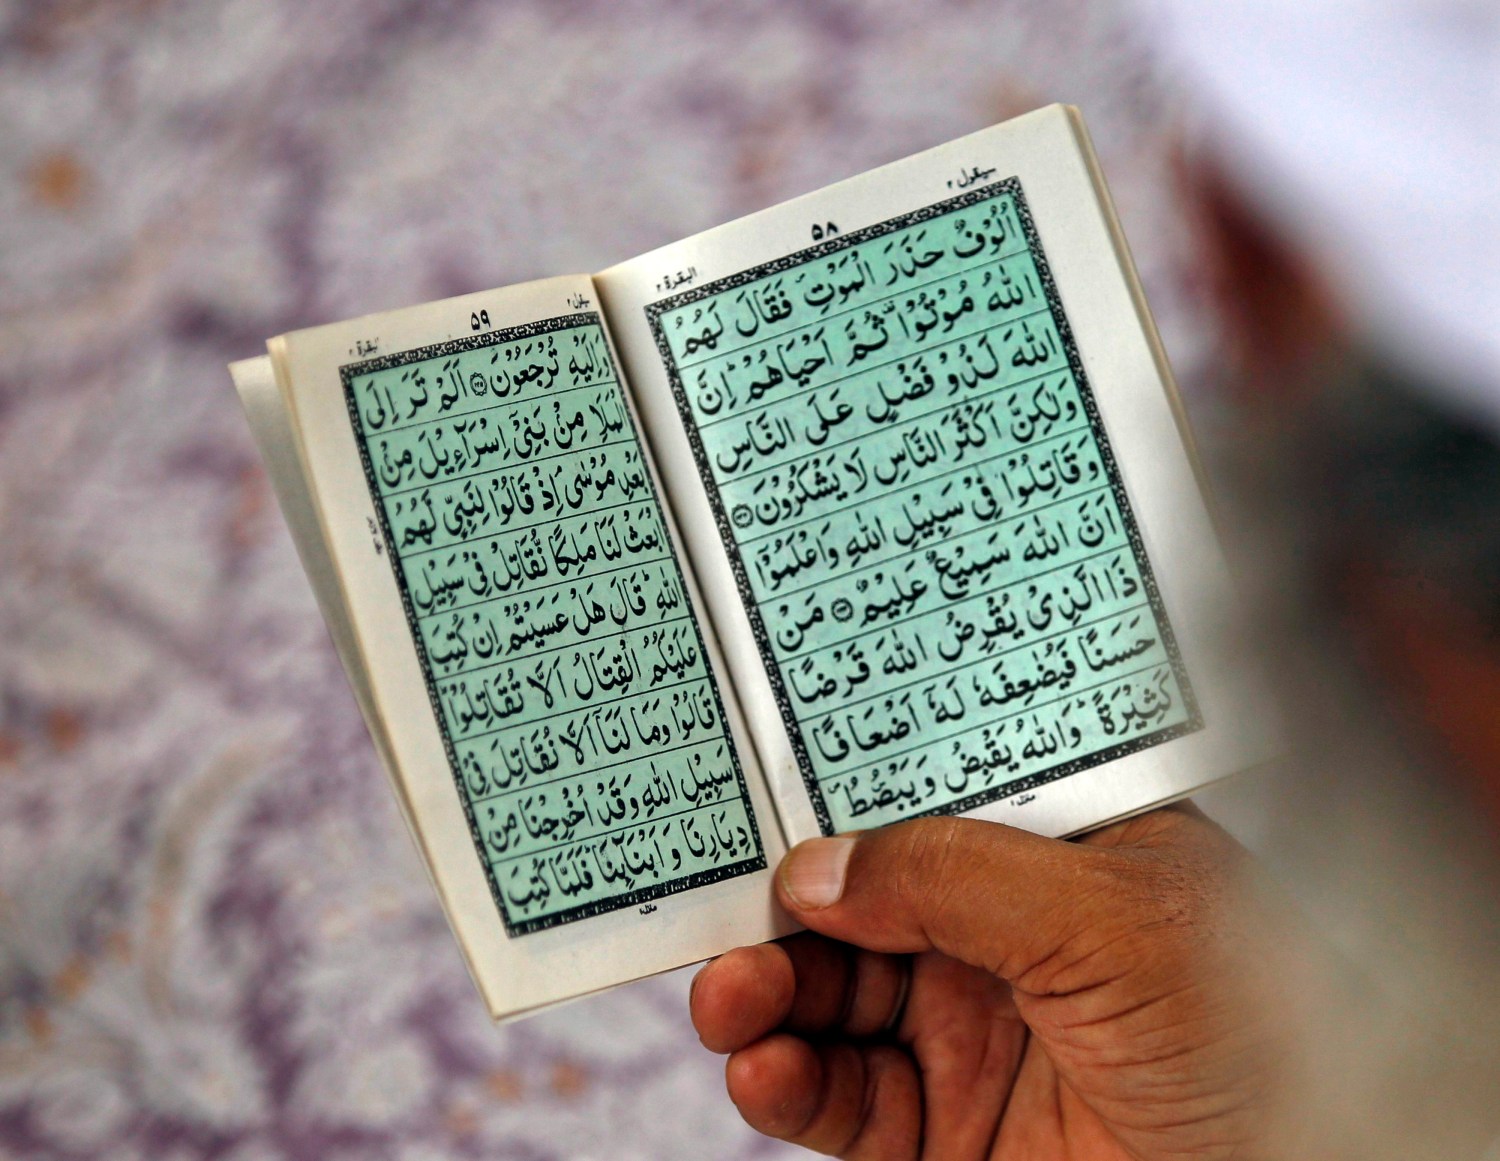 سيقول ٢
٥٨
البقرة ٢
اُلُوْفٌ حَذَرَ الْمَوْتِ فَقَالَ لَهُمُ
اللّٰهُ مُوْتُوْا ثُمَّ اَحْيَاهُمْ اِنَّ
اللّٰهَ لَذُوْ فَضْلٍ عَلَى النَّاسِ
وَلٰكِنَّ اَكْثَرَ النَّاسِ لَا يَشْكُرُوْنَ ۝٢٤٣
وَقَاتِلُوْا فِيْ سَبِيْلِ اللّٰهِ وَاعْلَمُوْٓا
اَنَّ اللّٰهَ سَمِيْعٌ عَلِيْمٌ ۝٢٤٤ مَنْ
ذَا الَّذِيْ يُقْرِضُ اللّٰهَ قَرْضًا
حَسَنًا فَيُضٰعِفَهٗ لَهٗٓ اَضْعَافًا
كَثِيْرَةً وَاللّٰهُ يَقْبِضُ وَيَبْصُۜطُ
منزل ١
سيقول ٢
٥٩
البقرة ٢
وَاِلَيْهِ تُرْجَعُوْنَ ۝٢٤٥ اَلَمْ تَرَ اِلَى
الْمَلَاِ مِنْۢ بَنِيْٓ اِسْرَآءِيْلَ مِنْۢ
بَعْدِ مُوْسٰى اِذْ قَالُوْا لِنَبِيٍّ لَّهُمُ
ابْعَثْ لَنَا مَلِكًا نُّقَاتِلْ فِيْ سَبِيْلِ
اللّٰهِ قَالَ هَلْ عَسَيْتُمْ اِنْ كُتِبَ
عَلَيْكُمُ الْقِتَالُ اَلَّا تُقَاتِلُوْا
قَالُوْا وَمَا لَنَآ اَلَّا نُقَاتِلَ فِيْ
سَبِيْلِ اللّٰهِ وَقَدْ اُخْرِجْنَا مِنْ
دِيَارِنَا وَاَبْنَآئِنَا فَلَمَّا كُتِبَ
منزل ١